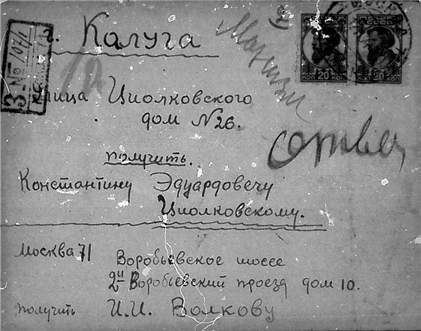 г. Калуга
улица Циолковского
дом №26.
получить.
Константину Эдуардовечу
Циолковскому.
Москва 71 Воробьевское шоссе
2й Воробьевский проезд дом 10.
получить И.И. Волкову
Ответ
20 20